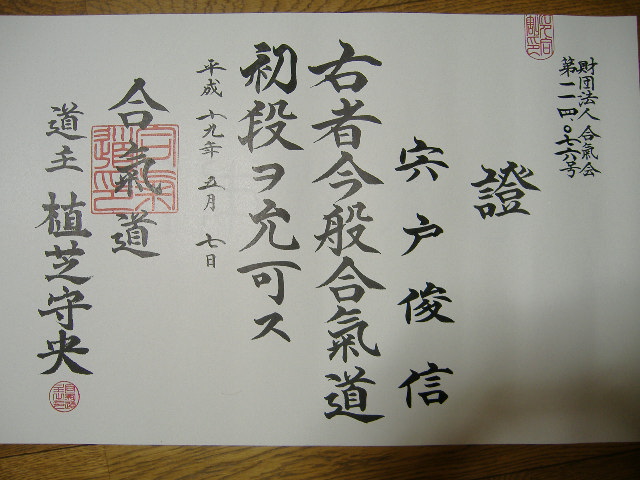 財団法人 合氣会
第二一四〇七六号
證
宍戸俊信
右者今般合氣道
初段ヲ允可ス
平成十九年 五月 七日
合氣道
道主 植芝守央